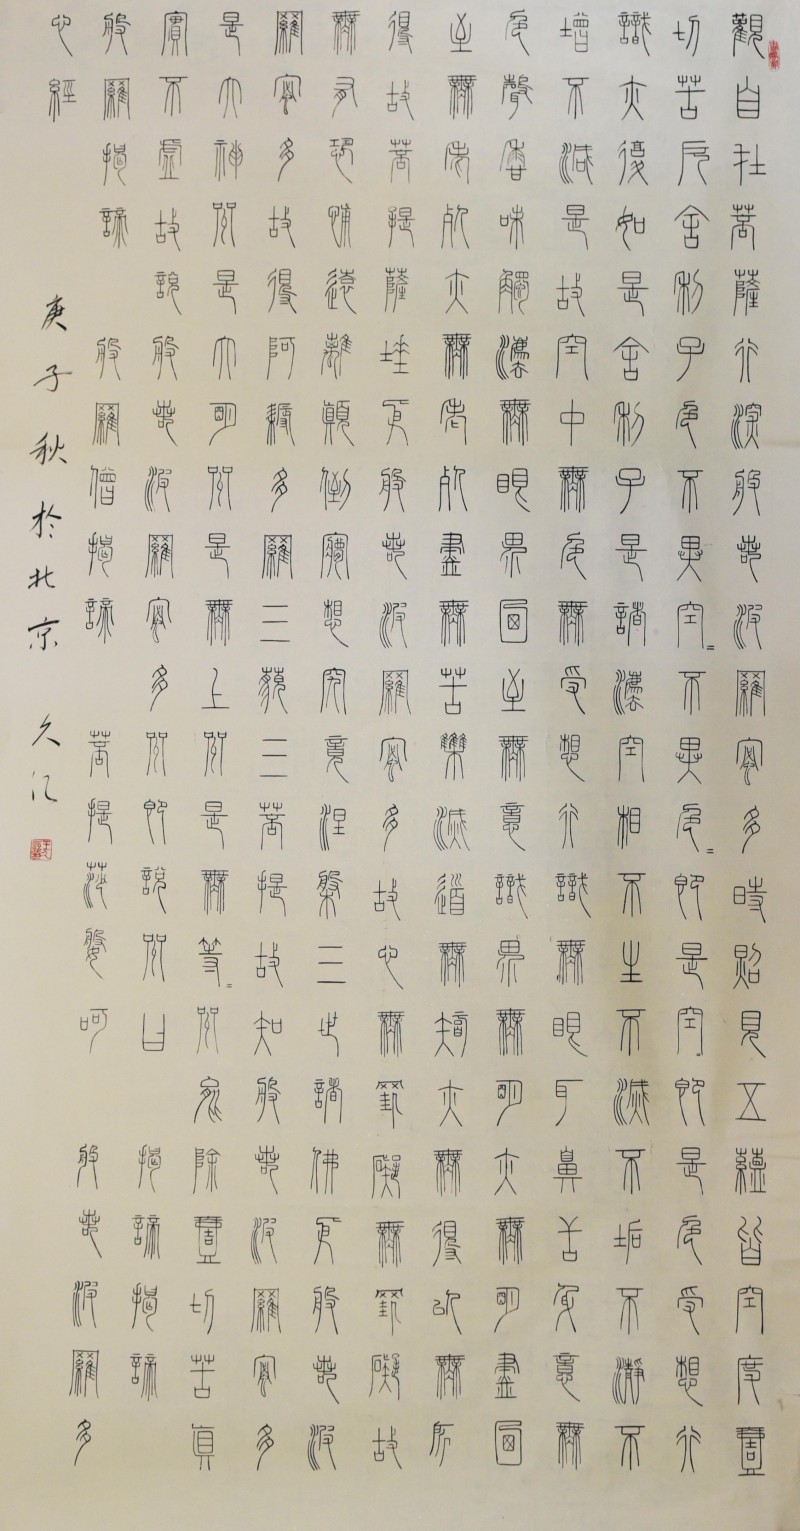 觀自在菩薩行深般若波羅蜜多時照見五蘊皆空度壹
切苦厄舍利子色不異空=不異色=即是空=即是色受想行
識亦復如是舍利子是諸法空相不生不滅不垢不淨不
增不減是故空中無色無受想行識無眼耳鼻舌身意無
色聲香味觸法無眼界乃至無意識界無明亦無明盡乃
至無老死亦無老死盡無苦集滅道無智亦無得以無所
得故菩提薩埵依般若波羅蜜多故心無罣礙無罣礙故
無有恐怖遠離顛倒夢想究竟涅槃三世諸佛依般若波
羅蜜多故得阿耨多羅三藐三菩提故知般若波羅蜜多
是大神咒是大明咒是無上咒是無等=咒能除壹切苦真
實不虛故說般若波羅蜜多咒即說咒曰 揭諦揭諦
般羅揭諦 般羅僧揭諦 菩提莎婆呵 般若波羅多
心經
庚子秋於北京 久江